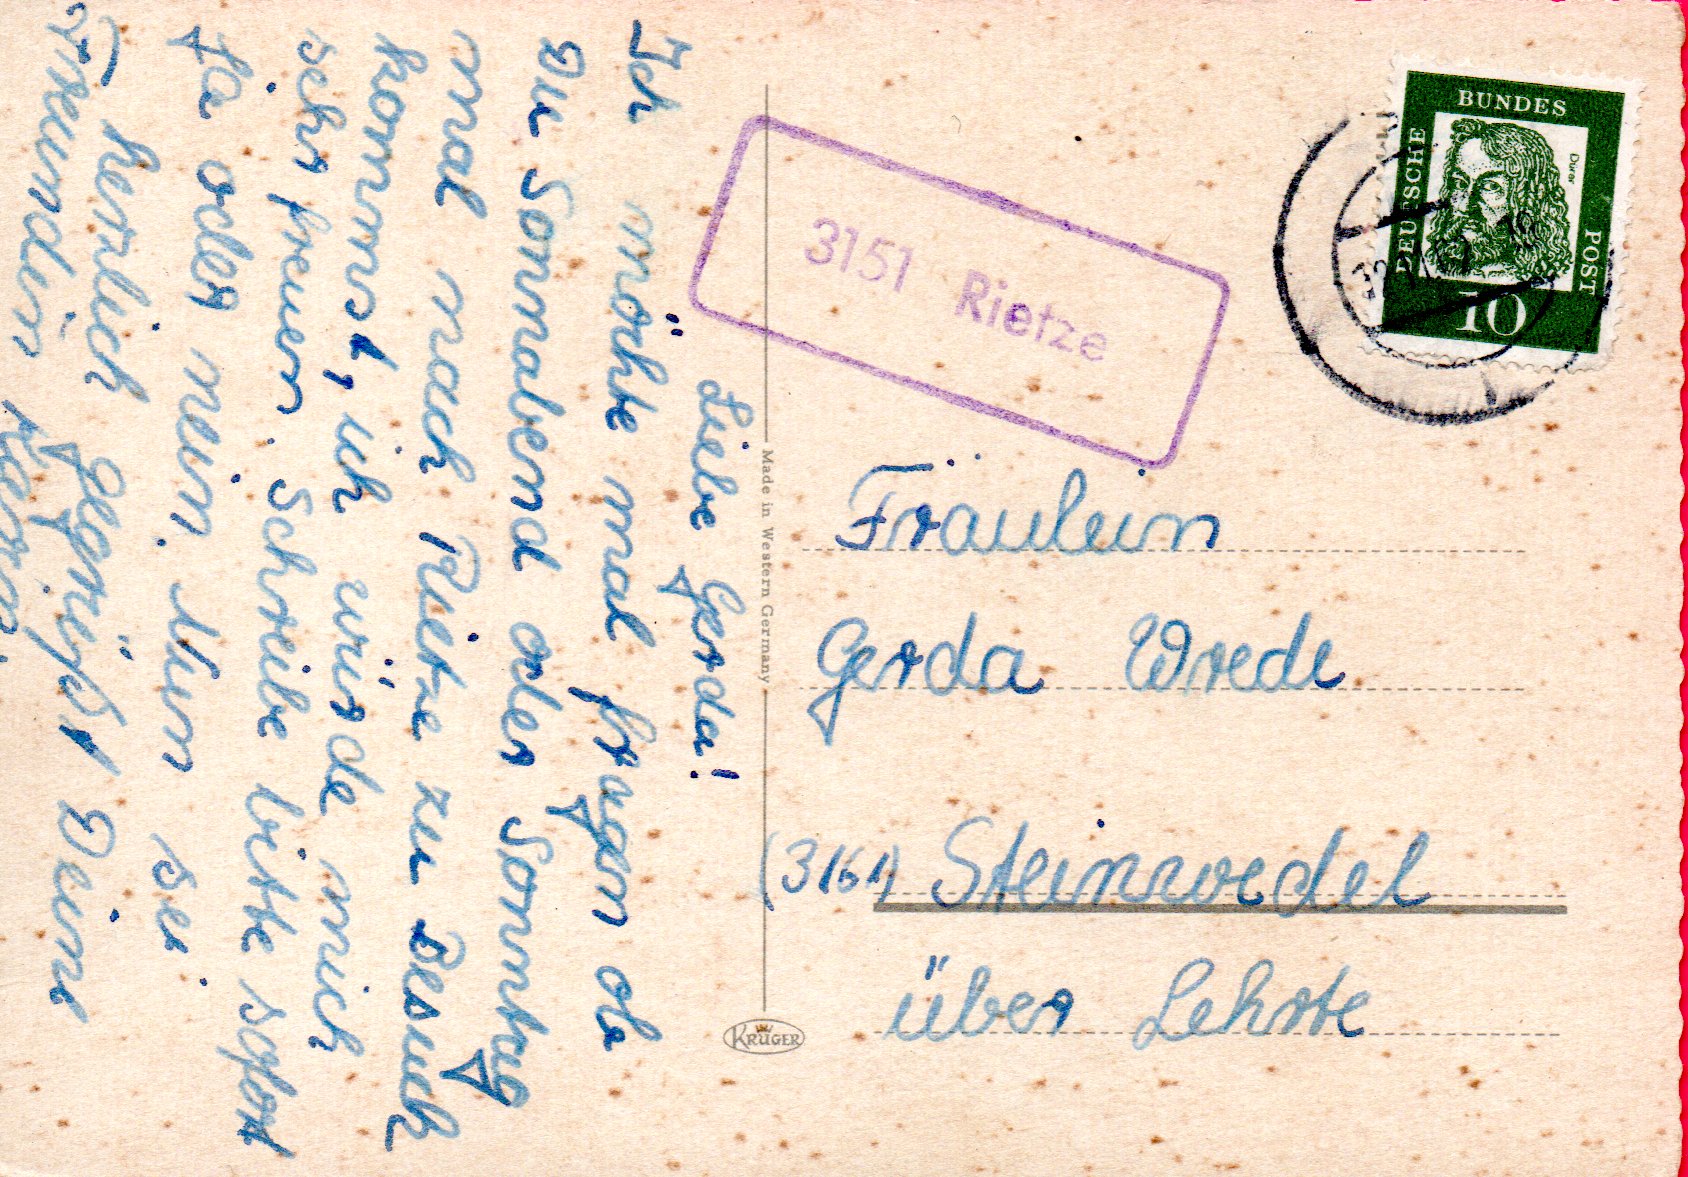 Liebe Gerda!
Ich möhte mal fragen ob
Du Sonnabend oder Sonntag
mal nach Rietze zu Besuch
kommst, ich würde mich
sehr freuen. Schreibe bitte sofort
Ja oder nein. Nun sei
herlich gegrüßt Deine
Freundin
3151 Rietze
DEUSCHE
BUNDES
POST
Dürer
10
Made in Western Germany
KRÜGER
Fräulein
Gerda Wrede
(3161) Steinwedel
über Lehrte